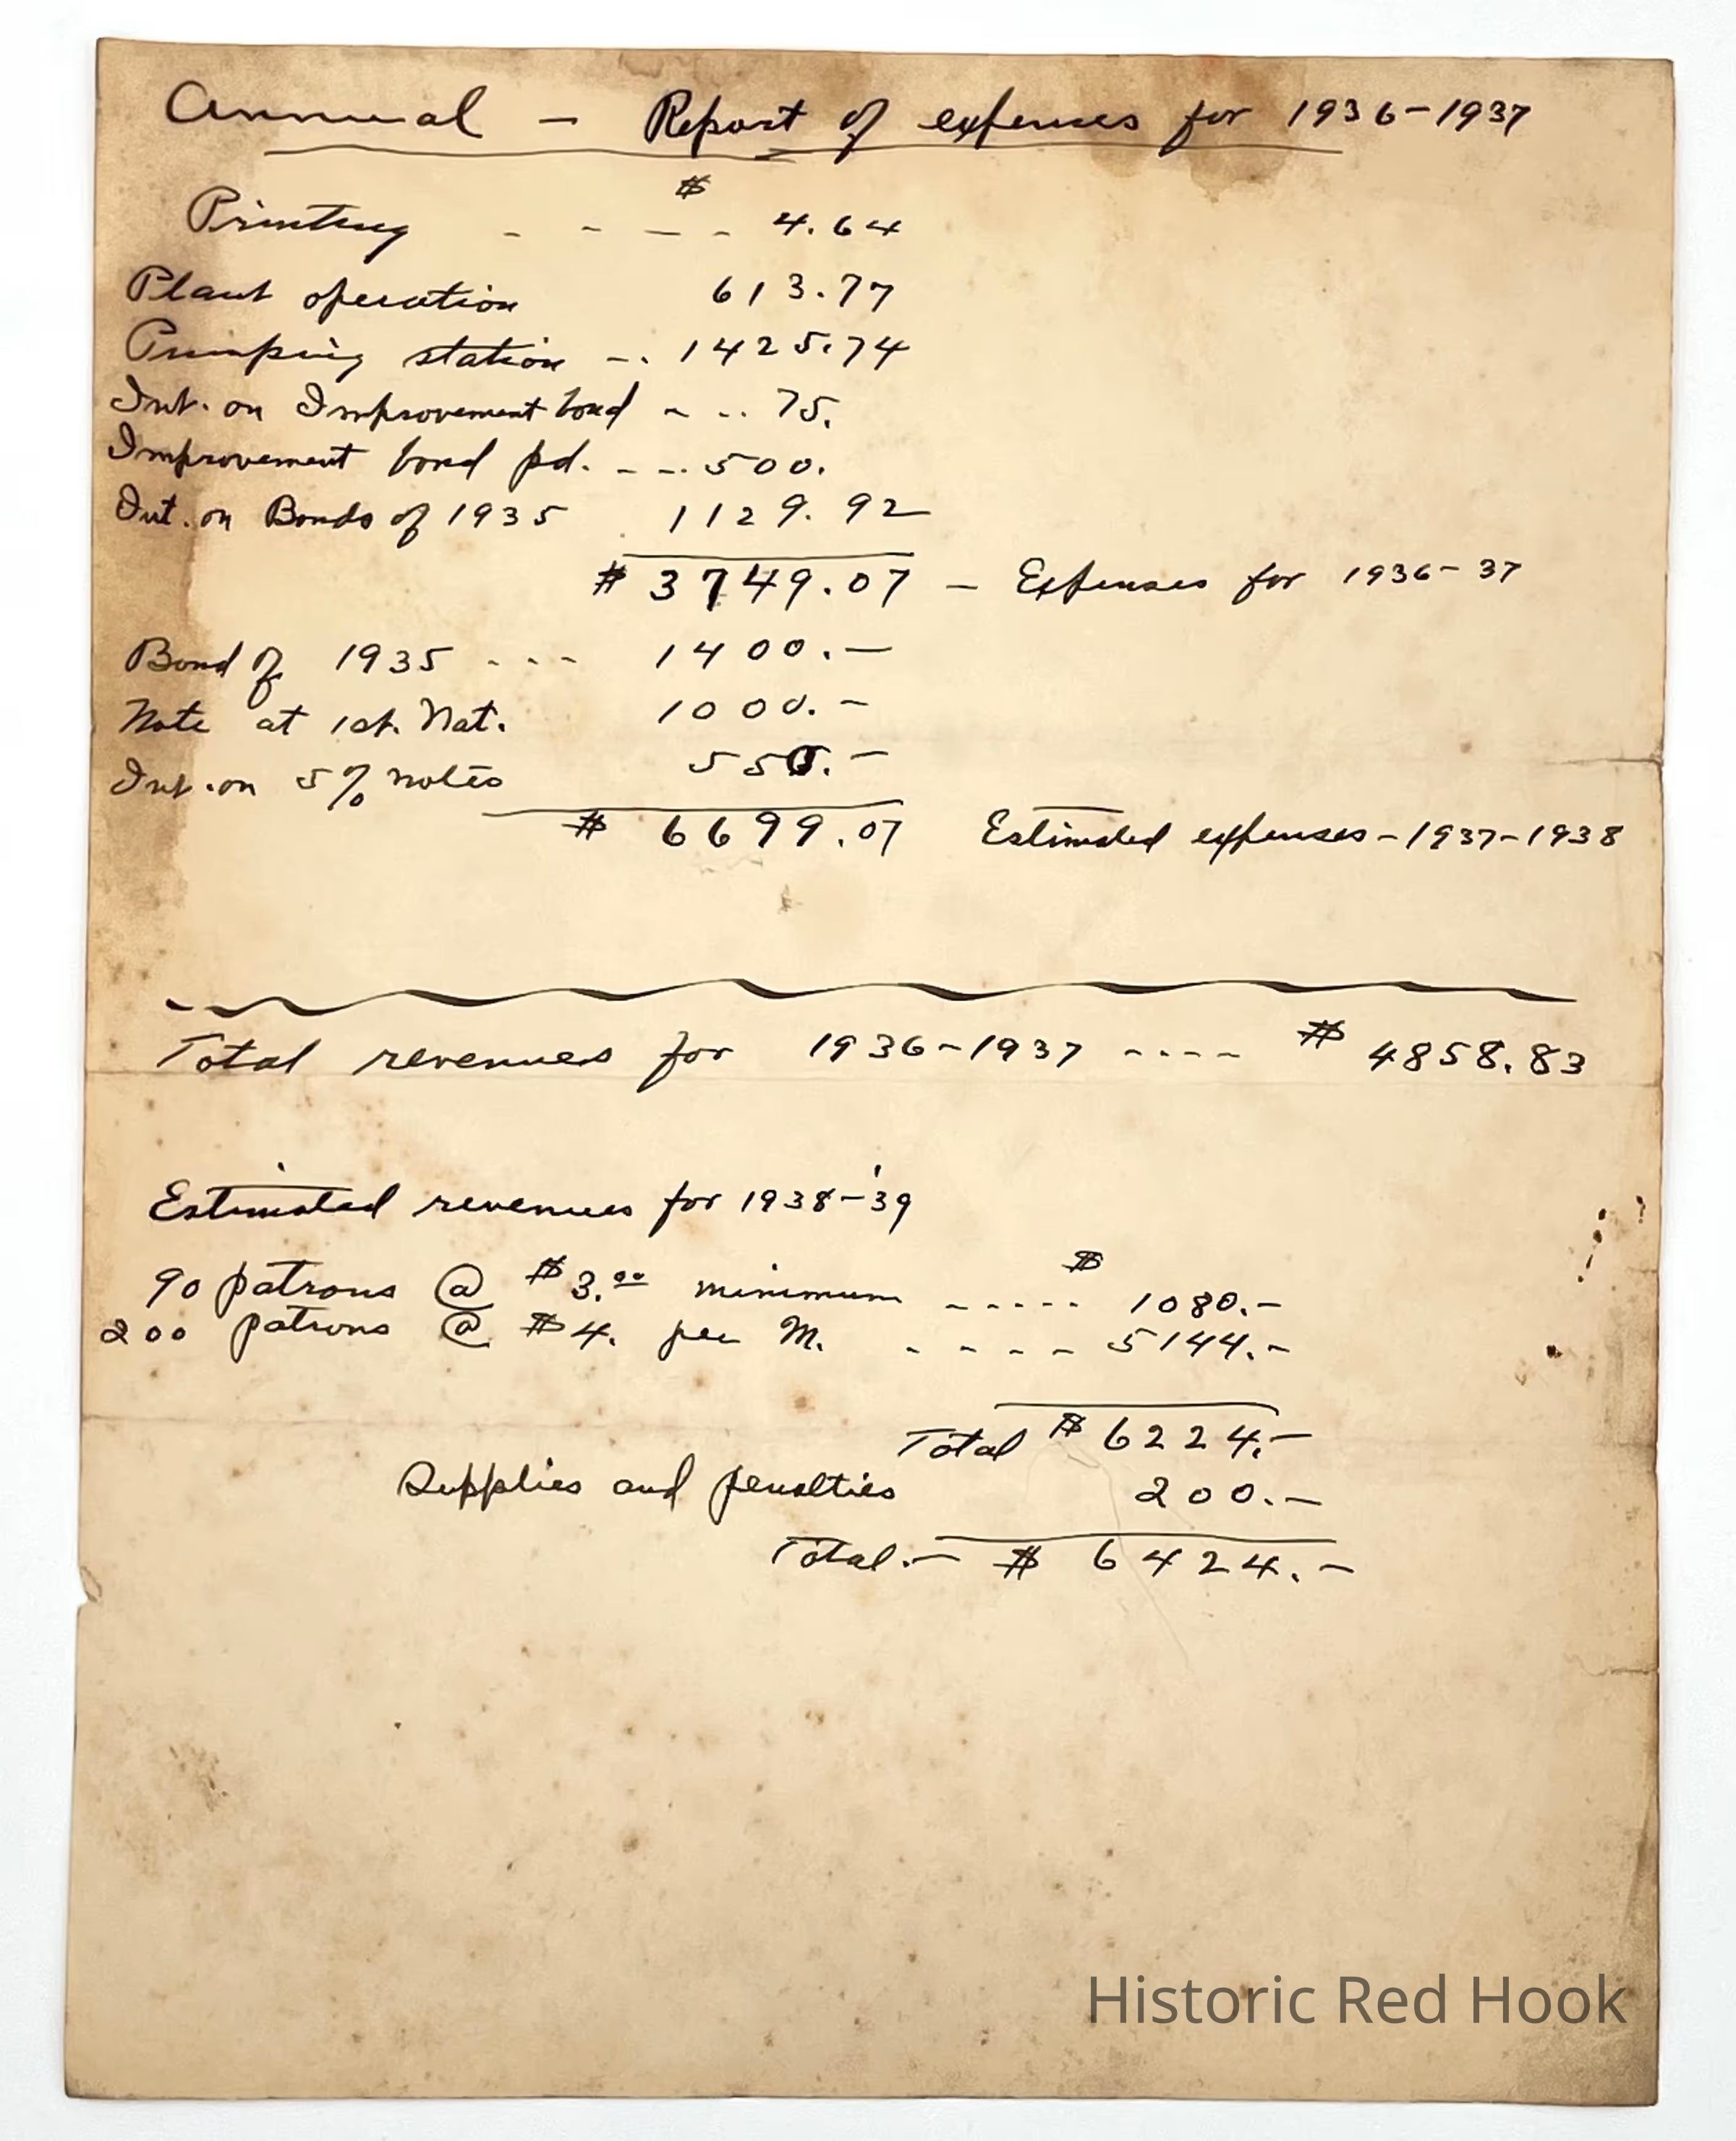 Annual - Report of expenses for 1936-1937
$
Printing - - - - 4.64
Plant operation 613.77
Pumping station - . 1425.74
Int. on Improvement bond - . . 75.
Improvement bond pd. - - . 500.
Int. on Bonds of 1935 1129.92
$ 3749.07 - Expenses for 1936-37
Bond of 1935 - - - 1400.-
Note at 1st. Nat. 1000.-
Int. on 5% notes 550.-
$ 6699.07 Estimated expenses - 1937-1938
Total revenues for 1936-1937 - - - - $ 4858.83
Estimated revenues for 1938-'39
$
90 patrons @ $3.00 minimum - - - - - 1080.-
200 patrons @ $4. per M. - - - - 5144.-
Total $ 6224.-
Supplies and penalties 200.-
Total.- $ 6424.-
Historic Red Hook